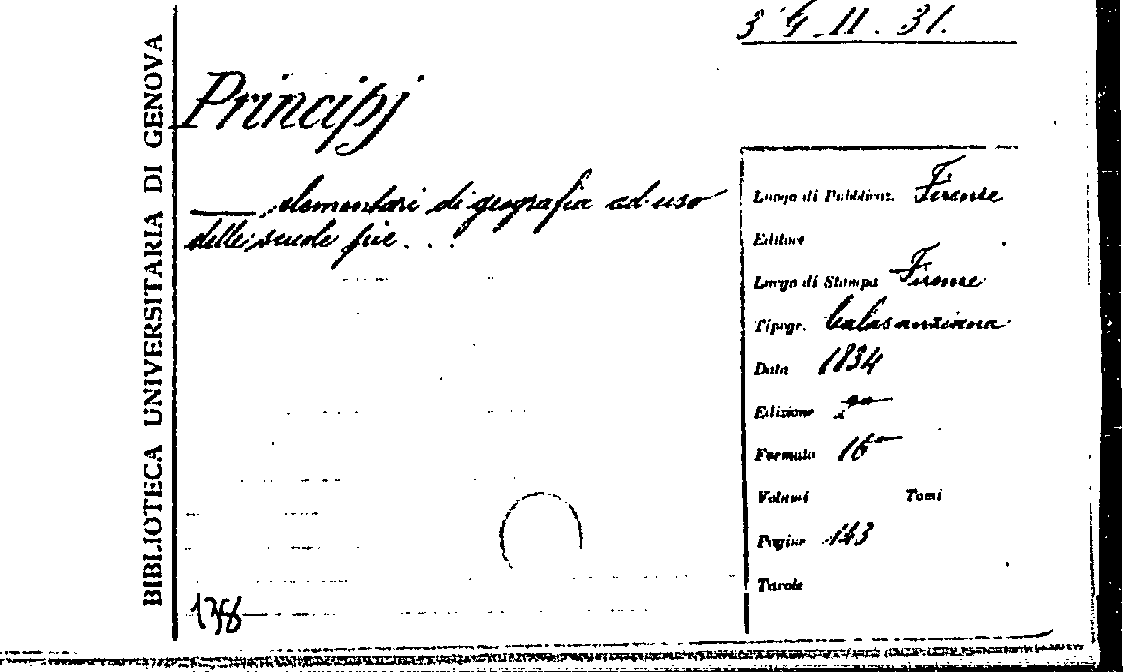 3 G. II. 31.
BIBLIOTECA UNIVERSITARIA DI GENOVA
Principj
—— elementari di geografia ad uso
delle scuole pie...
Luogo di Pubblicaz. Firenze
Editore
Luogo di Stampa Firenze
Tipogr. Calasanziana
Data 1834
Edizione
Formato 16°
Volumi Tomi
Pagine 143
Tavole